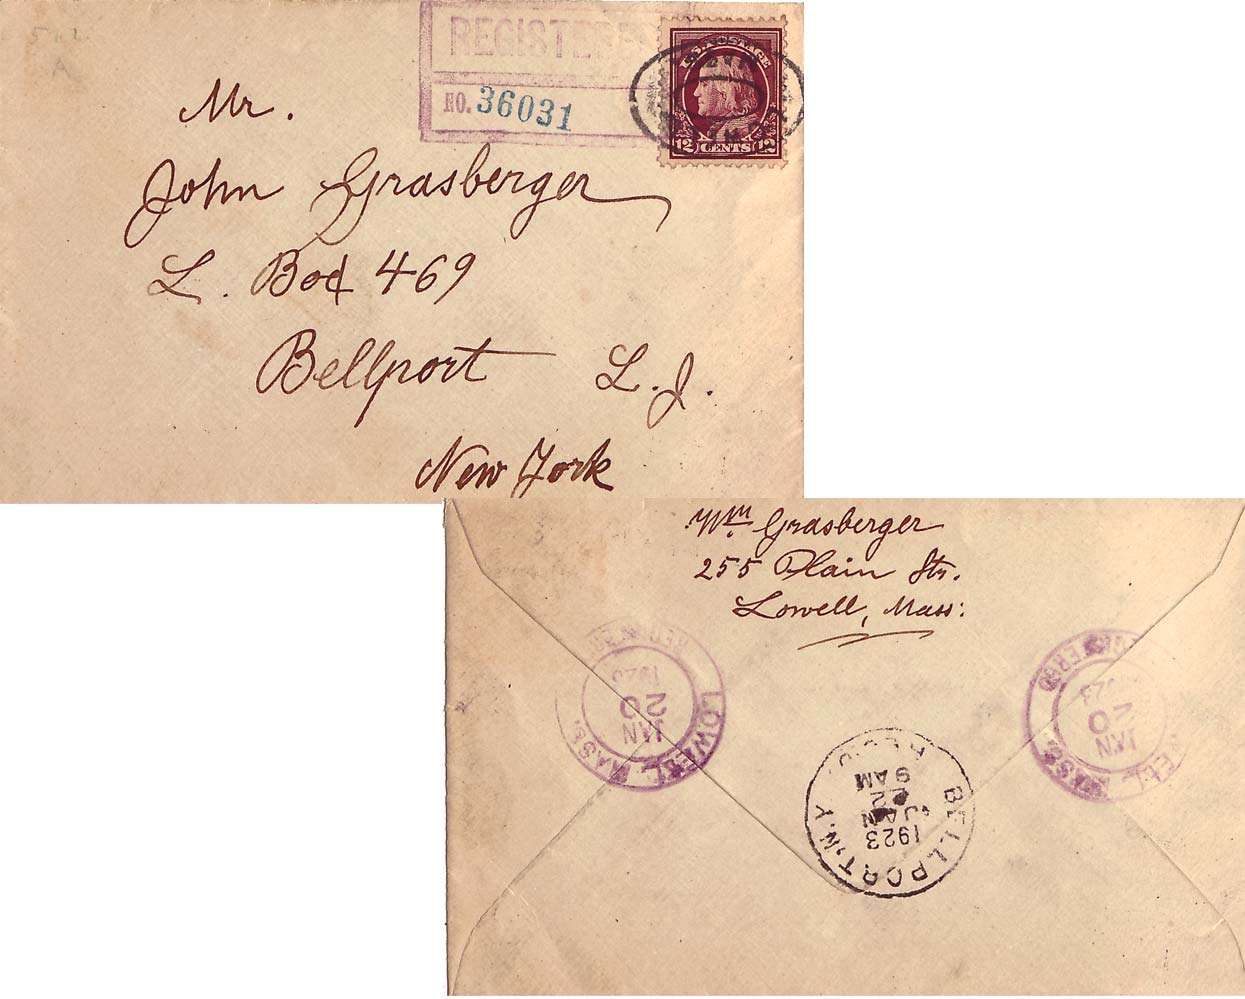 REGISTERED
NO. 36031
U.S. POSTAGE
12 CENTS 12
Mr.
John Grasberger
L. Box 469
Bellport L.I.
New York
Wm Grasberger
255 Plain Str.
Lowell, Mass:
REGISTERED
LOWELL, MASS.
JAN
20
1923
REGISTERED
LOWELL, MASS.
JAN
20
1923
BELLPORT, N.Y.
1923
JAN
22
9 AM
REC'D.